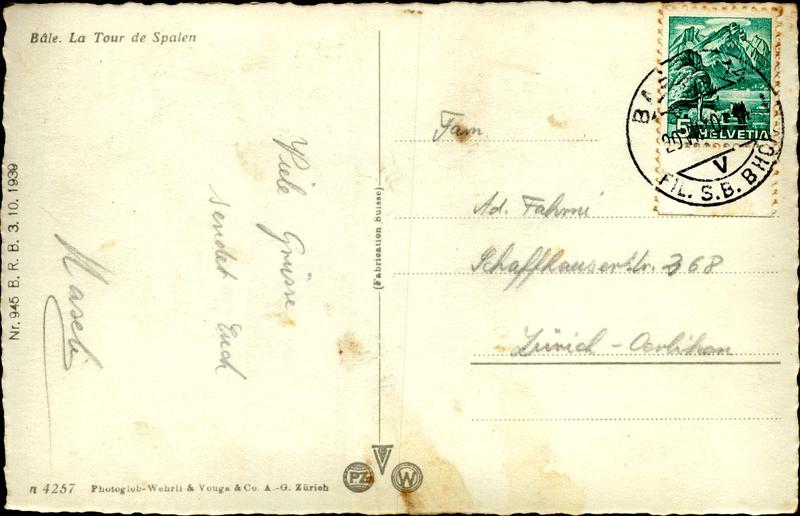 Bâle. La Tour de Spalen
Nr. 945 B. R. B. 3. 10. 1939
Viele Grüsse
sendet Euch
(Fabrication Suisse)
Fam.
Ad. Fahrni
Schaffhauserstr. 368
Zürich - Oerlikon
5 HELVETIA
V
FIL. S.B. BHO
n 4257 Photoglob-Wehrli & Vouga & Co. A.-G. Zürich
PZ
W